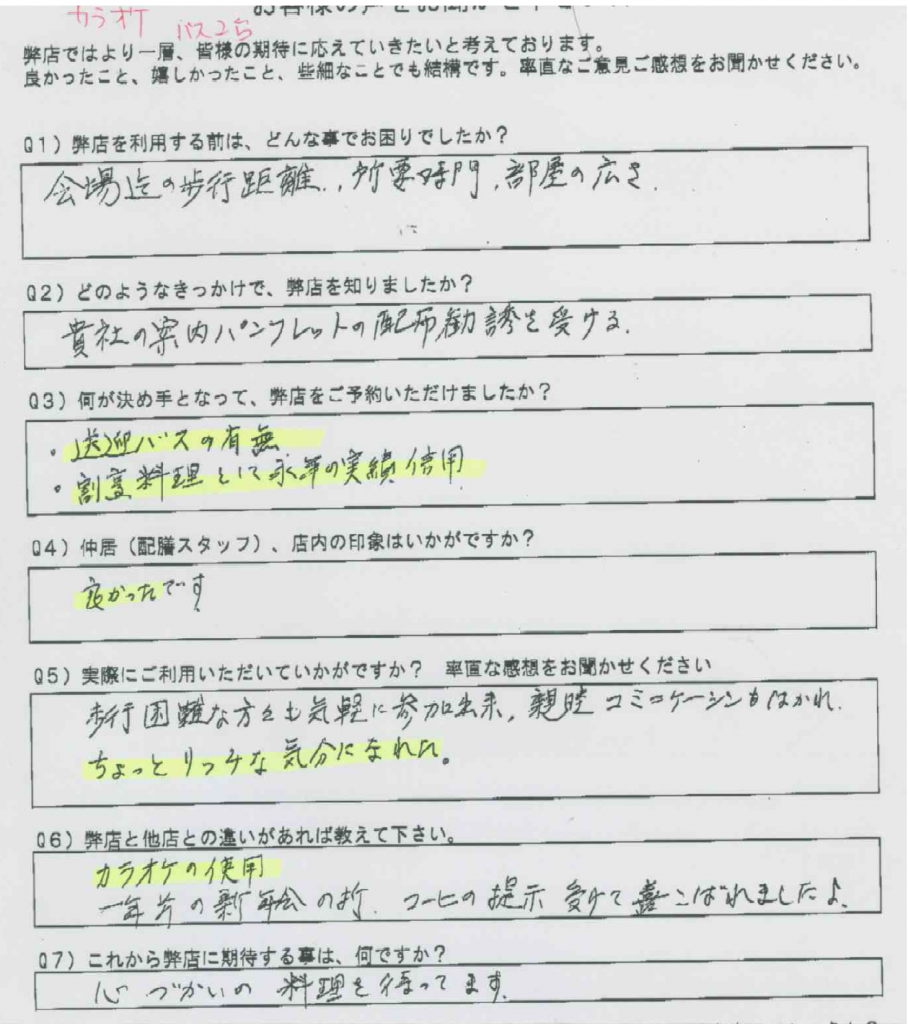 カラオケ バス2台
弊店ではより一層、皆様の期待に応えていきたいと考えております。
良かったこと、嬉しかったこと、些細なことでも結構です。率直なご意見ご感想をお聞かせください。
Q1）弊店を利用する前は、どんな事でお困りでしたか？
会場迄の歩行距離、所要時間、部屋の広さ.
Q2）どのようなきっかけで、弊店を知りましたか？
貴社の案内パンフレットの配布勧誘を受ける.
Q3）何が決め手となって、弊店をご予約いただけましたか？
・送迎バスの有無
・割烹料理として永年の実績信用
Q4）仲居（配膳スタッフ）、店内の印象はいかがですか？
良かったです
Q5）実際にご利用いただいていかがですか？　率直な感想をお聞かせください
歩行困難な方々も気軽に参加出来、親睦コミニケーシンもはかれ.
ちょっとリッチな気分になれた。
Q6）弊店と他店との違いがあれば教えて下さい。
カラオケの使用
の新年会の折. コーヒの提示 受けて喜こばれましたよ.
Q7）これから弊店に期待する事は、何ですか？
心づかいの料理を待ってます.